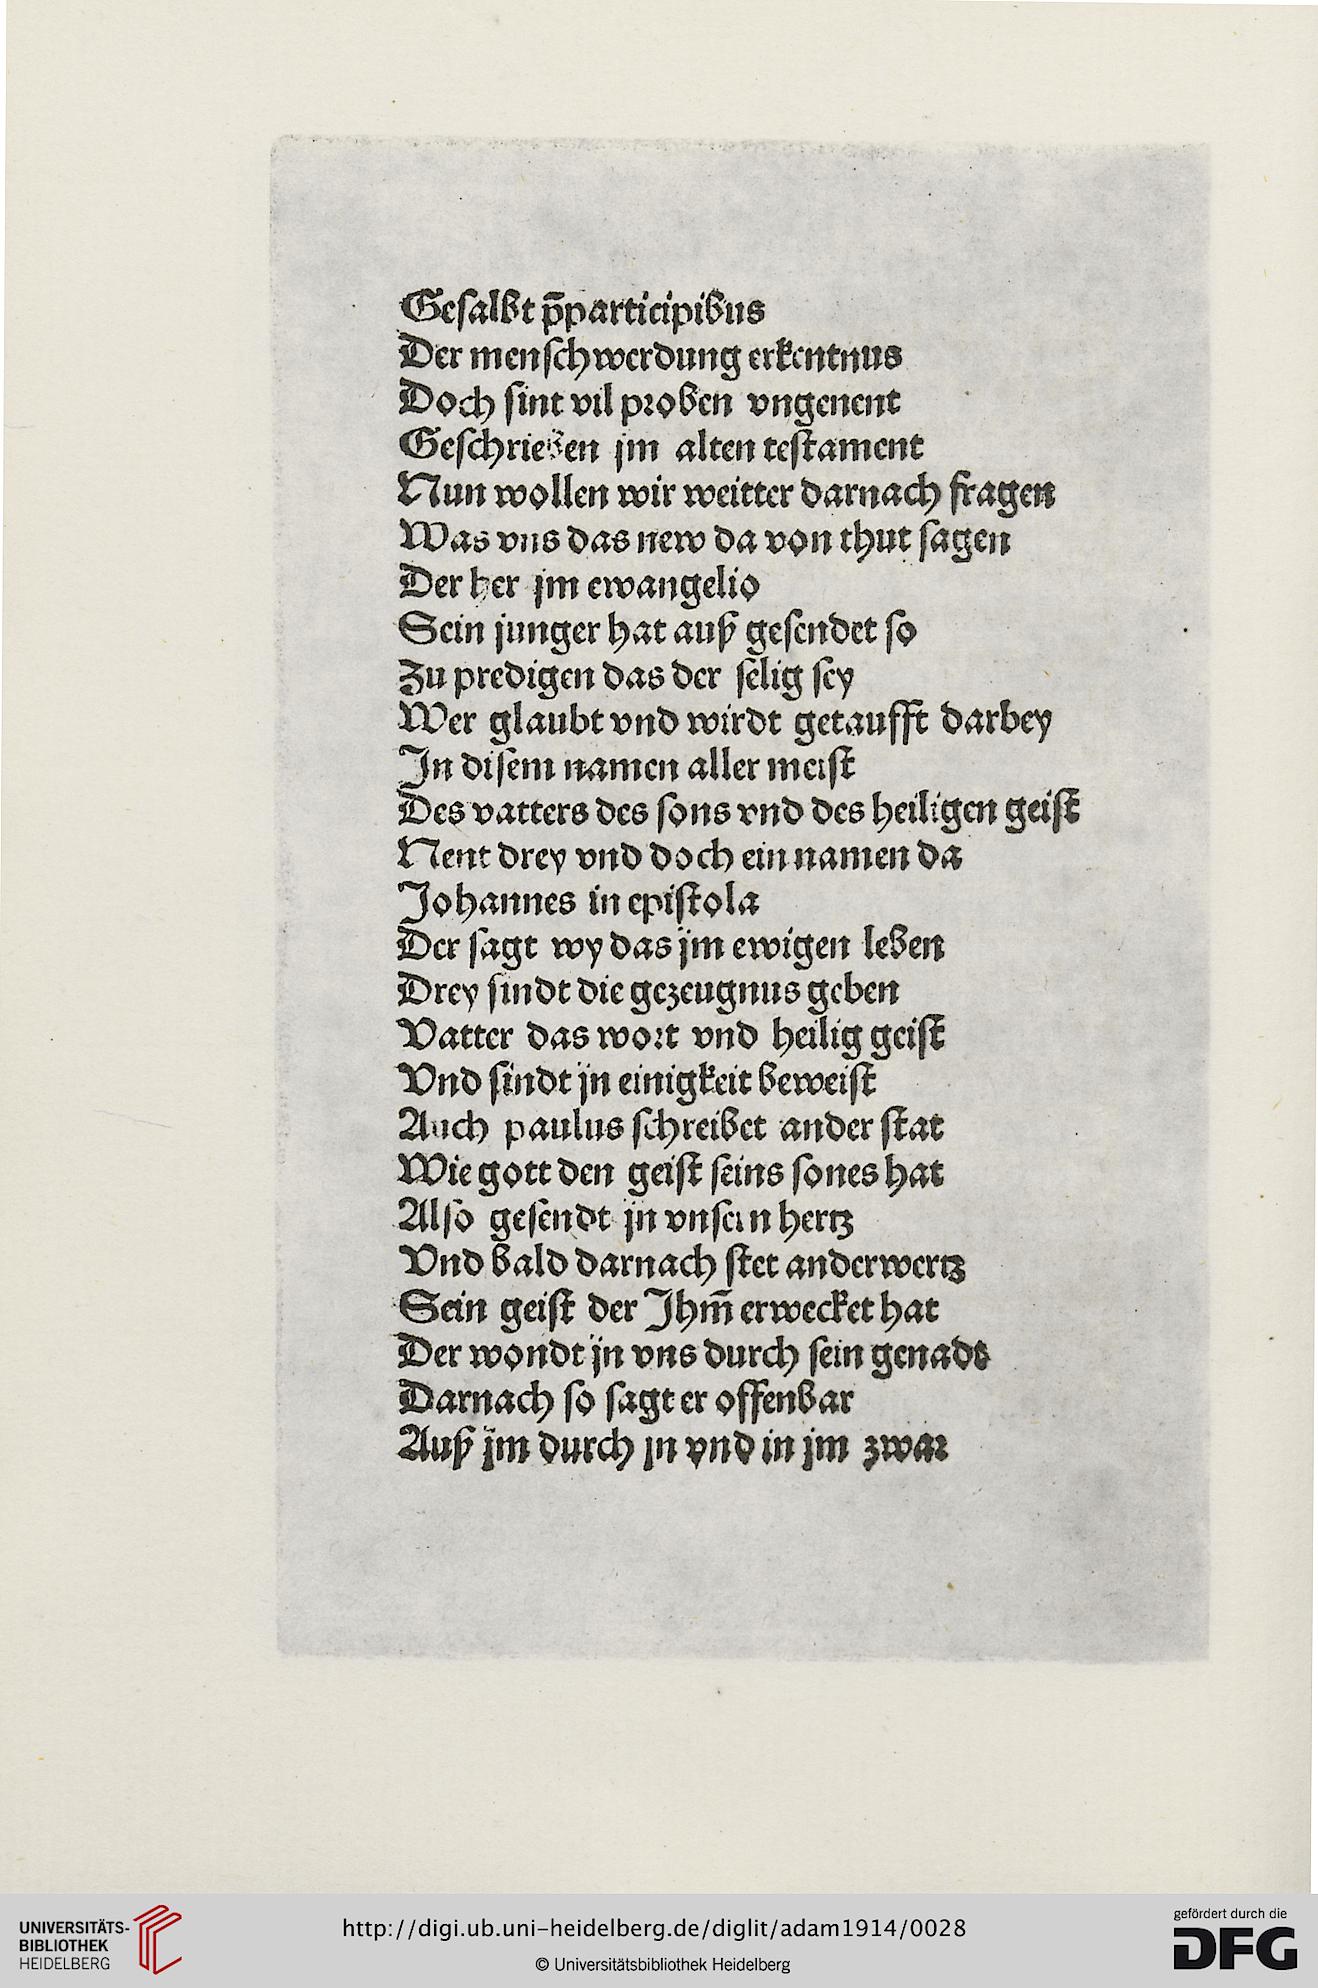 Gesalbt p̄participibus
Der menschwerdung erkentnus
Doch sint vil proben vngenent
Geschrieben jm alten testament
Nun wollen wir weitter darnach fragen
Was vns das new da von thut sagen
Der her jm ewangelio
Sein junger hat auß gesendet so
Zu predigen das der selig sey
Wer glaubt vnd wirdt getaufft darbey
In disem namen aller meist
Des vatters des sons vnd des heiligen geist
Nent drey vnd doch ein namen da
Johannes in epistola
Der sagt wy das jm ewigen leben
Drey sindt die gezeugnus geben
Vatter das wort vnd heilig geist
Vnd sindt jn einigkeit beweist
Auch paulus schreibet ander stat
Wie gott den geist seins sones hat
Also gesendt jn vnsern hertz
Vnd bald darnach stet anderwertz
Sein geist der Jhm̄ erwecket hat
Der wondt jn vns durch sein genade
Darnach so sagt er offenbar
Auß jm durch jn vnd in jm zwar
UNIVERSITÄTS-
BIBLIOTHEK
HEIDELBERG
http://digi.ub.uni-heidelberg.de/diglit/adam1914/0028
© Universitätsbibliothek Heidelberg
gefördert durch die
DFG